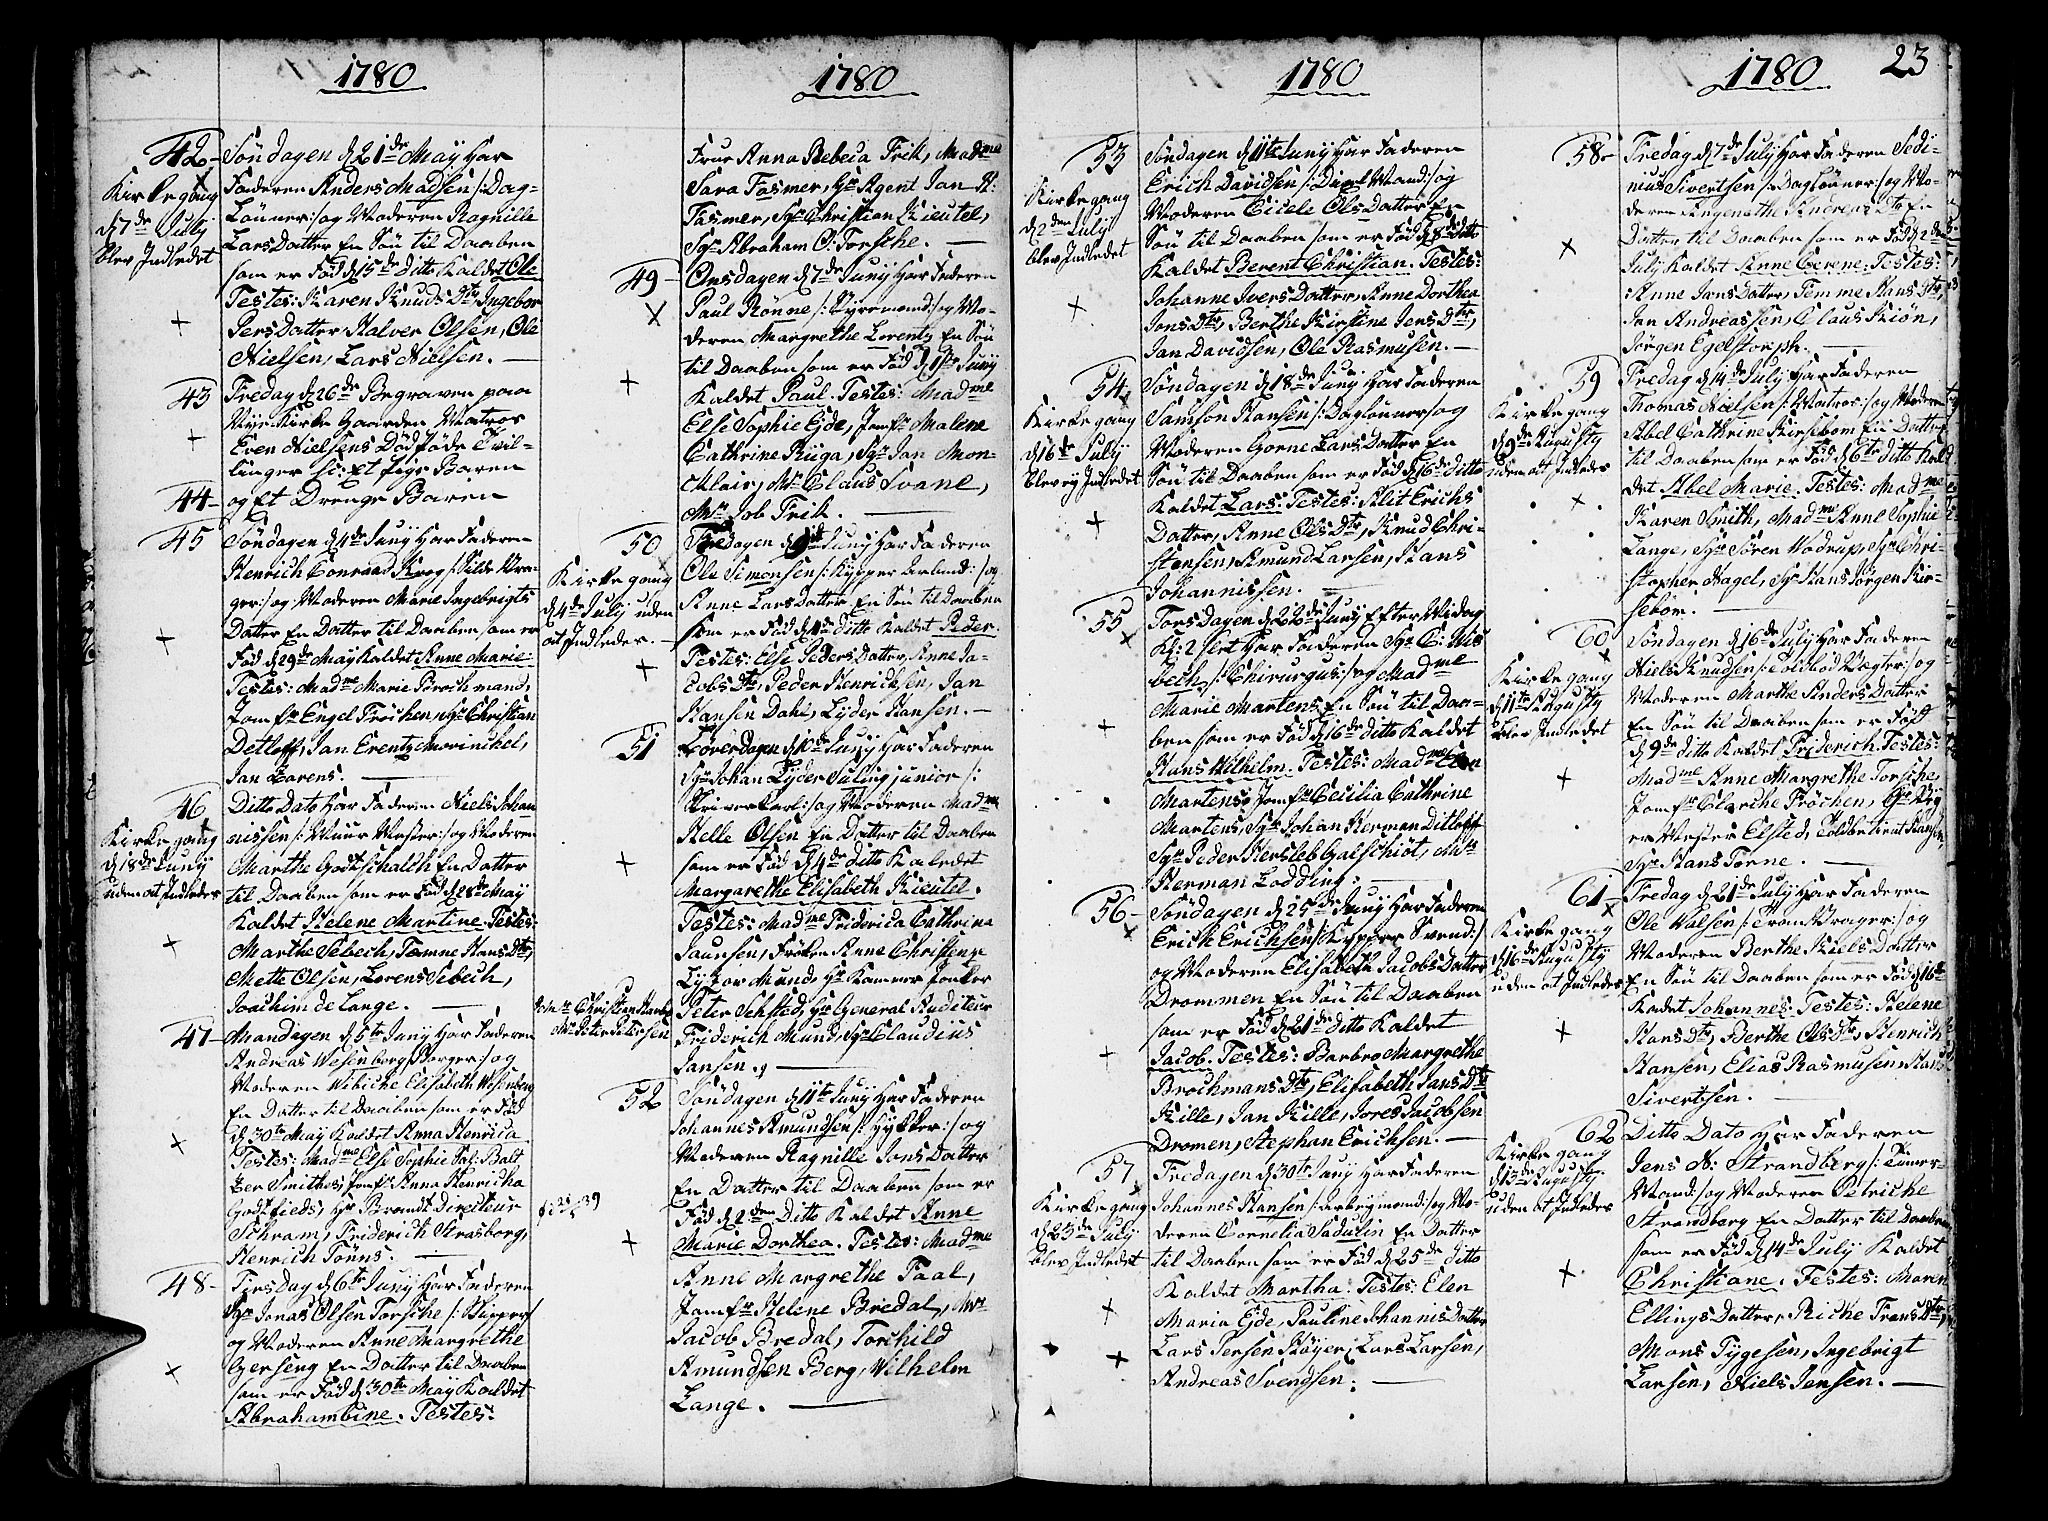 1780
42
Kirkegang
d 7de July
blev Indledet
Søndagen d 21de May Har
Faderen Anders Madsen /: Dag-
Lønner :/ og Moderen Ragnille
Lars Datter En Søn til Daaben
som er Fød d 15de ditto Kaldet Ole
Testes: Karen Knuds Dtr, Ingebor
Pers Datter, Halver Olsen, Ole
Nielsen, Lars Nielsen.
43
Fredag d 26de Begraven paa
Nye Kirke Gaarden Matros
Even Nielsens Dødføde Tvil-
linger se: Et Pige Baren
44
og Et Drenge Baren
45
Søndagen d 4de Juny Har Faderen
Henrich Conraad Krog /: Silde Vra-
ger :/ og Moderen Marie Ingebrigts
Datter En Datter til Daaben som er
Fød d 29de May Kaldet Anne Marie
Testes: Madme Marie Brochmand,
Jomfr Engel Frochen, Sr Christian
Detloff, Jan Erentz Movinchel,
Jan Larens.
46
Kirkegang
d 18de Juny
uden at Indledes
Ditto Dato Har Faderen Niels Johan
nissen /: Muur Mester :/ og Moderen
Marthe Godtschalch En Datter
til Daaben som er Fød d 28de May
Kaldet Helene Martine. Testes:
Marthe Sebech, Temne Hans Dtr,
Mette Olsen, Lorens Sebech,
Joachim de Lange.
47
Mandagen d 5te Juny Har Faderen
Andreas Wesenberg /: Borger :/ og
Moderen Wibiche Elisabeth Wesenberg
En Datter til Daaben som er Fød
d 30te May Kaldet Anna Henrica
Testes: Madme Else Sophie Sal: Balt
zer Smithes, Jomfr Anna Henricha
Godtfieds, Hr Brandt Directeur
Schram, Friderich Strasborg,
Henrich Tønns.
48
Tirsdag d 6te Juny Har Faderen
Sr Jonas Olsen Torsche /: Skipper :/
og Moderen Anne Margrethe
Gerseng En Datter til Daaben
som er Fød d 30te May Kaldet
Abrahambine. Testes:
1780
Frue Anna Rebeca Frik, Madme
Sara Fasmer, Hr Agent Jan H:
Fasmer, Sr Christian Kieutel,
Sr Abraham O: Torsche.
49
Onsdagen d 7de Juny Har Faderen
Paul Rønne /: Styremand :/ og Mo-
deren Margrethe Lorentz En Søn
til Daaben som er Fød d 1te Juny
Kaldet Paul. Testes: Madme
Else Sophie Ejde, Jomfr Malene
Cathrine Rüga, Sr Jan Mon-
Clair, Mr Claus Svane,
Mr Job Frik.
50
Kirkegang
d 4de July uden
at Indledes.
Fredagen d 9de Juny Har Faderen
Ole Simonsen /: Kypper :/ og
Anne Lars Datter En Søn til Daaben
som er Fød d 4de ditto Kaldet Peder.
Testes: Else Peders Datter, Anne Ja-
cobs Dtr, Peder Henrichsen, Jan
Hansen Dahl, Lyder Hansen.
51
Løverdagen d 10de Juny Har Faderen
Sr Johan Lyder Suling junior /:
Skriverkarl :/ og Moderen Madme
Helle Olsen En Datter til Daaben
som er Fød d 4de ditto Kaldet
Margarethe Elisabeth Kieutel.
Testes: Madme Friderica Cathrina
Jaunsen, Frøken Anne Christense
Lytzov Mund, Hr Kammer Jonker
Peter Sehsted, Hr General Auditeur
Friderich Mund, Sr Claudius
Jansen,
Mr Peter Petersen
52
Søndagen d 11te Juny Har Faderen
Johannes Amundsen /: Kykker :/ og
Moderen Ragnille Jans Datter
En Datter til Daaben som er
Fød d 2den Ditto Kaldet Anne
Marie Dorthea. Testes: Madme
Anne Margrethe Faal,
Jomfr Helene Bredal, Mr
Jacob Bredal, Torchild
Amundsen Berg, Wilhelm
Lange.
1780
53
Kirkegang
d 2den July
blev Indledet
Søndagen d 11te Juny Har Faderen
Erich Davidsen /: Dixelmand :/ og
Moderen Cicele Ols Datter En
Søn til Daaben som er Fød d 8de ditto
Kaldet Berent Christian. Testes:
Johanne Ivers Datter, Anne Dorthea
Jons Dtr, Berthe Kirstine Jens Dtr,
Jan Davidsen, Ole Rasmusen.
54
Kirkegang
d 16de July
blev ey Indledet
Søndagen d 18de Juny Har Faderen
Samson Hansen /: Daglønner :/ og
Moderen Gorne Lars Datter En
Søn til Daaben som er Fød d 16de ditto
Kaldet Lars: Testes: Alit Erichs
Datter, Anne Ols Dtr, Knud Chri-
stensen, Amund Larsen, Hans
Johannissen.
55
Torsdagen d 22de Juny Efter Midag
Kl: 2 slet Har Faderen Sr C: Wis
bech, /: Chirurgus :/ og Madme
Marie Martens En Søn til Daa-
ben som er Fød d 16de ditto Kaldet
Hans Wilhelm. Testes: Madme Elen
Martens, Jomfr Cecilia Cathrine
Martens, Sr Johan Herman Ditleff
Sr Peder Hersleb Galschiöt, Mr
Herman Lodding.
56
Søndagen d 25de Juny Har Faderen
Erich Erichsen /: Kypper Svend :/
og Moderen Elisabeth Jacobs Datter
Drommen En Søn til Daaben
som er Fød d 21de ditto Kaldet
Jacob. Testes: Barbro Margrethe
Brochmans Dtr, Elisabeth Jans Dtr
Kille, Jan Kille, Jores Jacobsen
Dromen, Stephan Erichsen.
57
Kirkegang
d 23de July
blev Indledet
Fredagen d 30te Juny Har Faderen
Johannes Hansen /: Arbeysmand :/ og Mo-
deren Cornelia Sadulin En Datter
til Daaben som er Fød d 25de ditto
Kaldet Martha. Testes: Elen
Maria Ejde, Pauline Johannis Datter
Lars Persen Høyer, Lars Larsen,
Andreas Svendsen.
1780
23
58
Fredag d 7de July Har Faderen Sedi-
nius Sivertsen /: Daglønner :/ og Mo-
deren Angenethe Andreas Dtr En
Datter til Daaben som er Fød d 2den
July Kaldet Anne Cerene. Testes:
Anne Jans Datter, Temme Hans Dtr,
Jan Andreassen, Claus Kiøn,
Jørgen Egelstorph.
59
Kirkegang
d 9de Augusty
uden at Indledes
Fredag d 14de July Har Faderen
Thomas Nielsen /: Matros :/ og Moderen
Abel Cathrine Kirsebom En Datter
til Daaben som er Fød d 6te ditto Kal
det Abel Marie. Testes: Madme
Karen Smith, Madme Anne Sophie
Lange, Sr Søren Wodrup, Sr Chri-
stopher Nagel, Sr Hans Jørgen Kir-
sebom.
60
Kirkegang
d 11te Augusty
blev Indledet
Søndagen d 16de July Har Faderen
Niels Knudsen /: Toldbod Vægter :/ og
Moderen Marthe Anders Datter
En Søn til Daaben som er Fød
d 9de ditto Kaldet Friderich. Testes:
Madme Anne Margrethe Torsche,
Jomfr Clarche Frøchen, Hr Vey
er Mester Elsted, Toldbetient Hansen,
Sr Hans Torne.
61
Kirkegang
d 16de Augusty
uden at Indledes
Fredag d 21de July Har Faderen
Ole Walsen /: Tran Vrager :/ og
Moderen Berthe Niels Datter
En Søn til Daaben som er Fød d 16de
Kaldet Johannes. Testes: Helene
Hans Dtr, Berthe Ols Dtr, Henrich
Hansen, Elias Rasmusen, Hans
Sivertsen.
62
Kirkegang
d 13de Augusty
uden at Indledes
Ditto Dato Har Faderen
Jens N: Strandberg /: Timer-
Mand :/ og Moderen Petriche
Strandberg En Datter til Daaben
som er Fød d 14de July Kaldet
Christiane. Testes: Maren
Ellings Datter, Riche Frans Dtr,
Mons Tygesen, Ingebrigt
Larsen, Niels Jensen.